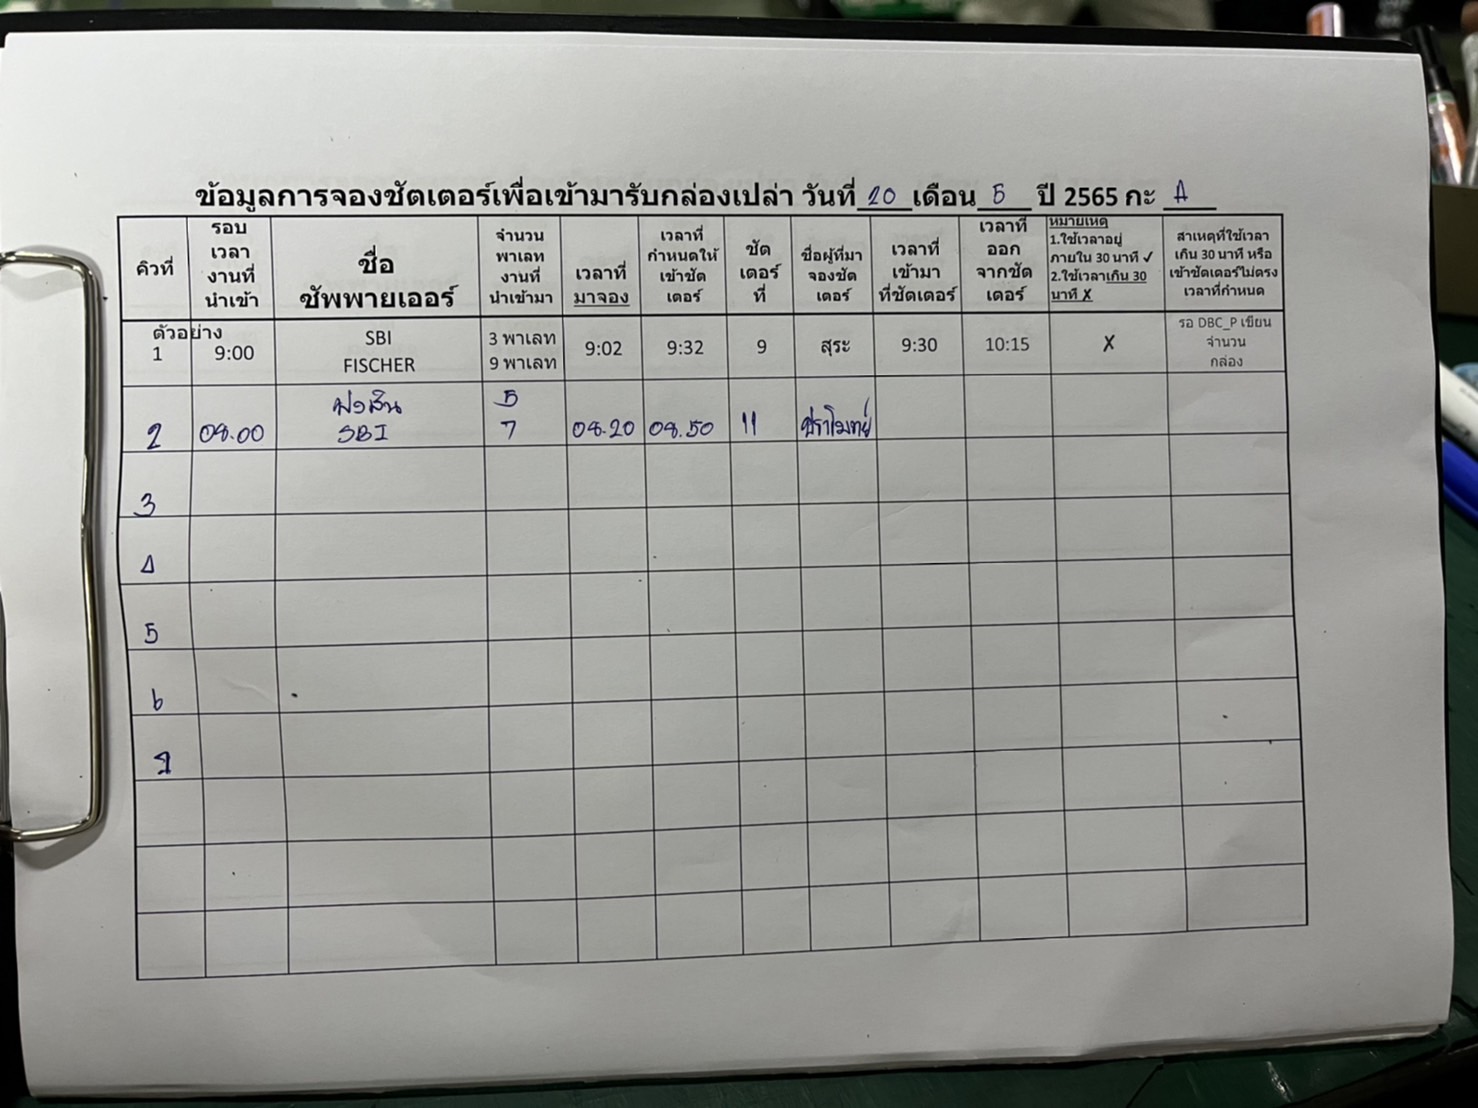 ข้อมูลการจองชัตเตอร์เพื่อเข้ามารับกล่องเปล่า วันที่ 20 เดือน 5 ปี 2565 กะ A
คิวที่
รอบ
เวลา
งานที่
นำเข้า
ชื่อ
ซัพพายเออร์
จำนวน
พาเลท
งานที่
นำเข้ามา
เวลาที่
มาจอง
เวลาที่
กำหนดให้
เข้าชัต
เตอร์
ชัต
เตอร์
ที่
ชื่อผู้ที่มา
จองชัต
เตอร์
เวลาที่
เข้ามา
ที่ชัตเตอร์
เวลาที่
ออก
จากชัต
เตอร์
หมายเหตุ
1.ใช้เวลาอยู่
ภายใน 30 นาที ✓
2.ใช้เวลาเกิน 30
นาที X
สาเหตุที่ใช้เวลา
เกิน 30 นาที หรือ
เข้าชัตเตอร์ไม่ตรง
เวลาที่กำหนด
ตัวอย่าง
1
9:00
SBI
FISCHER
3 พาเลท
9 พาเลท
9:02
9:32
9
สุระ
9:30
10:15
X
รอ DBC_P เขียน
จำนวน
กล่อง
5
2 08.00 SBI 7 08.20 08.50 11
3
4
5
6
7